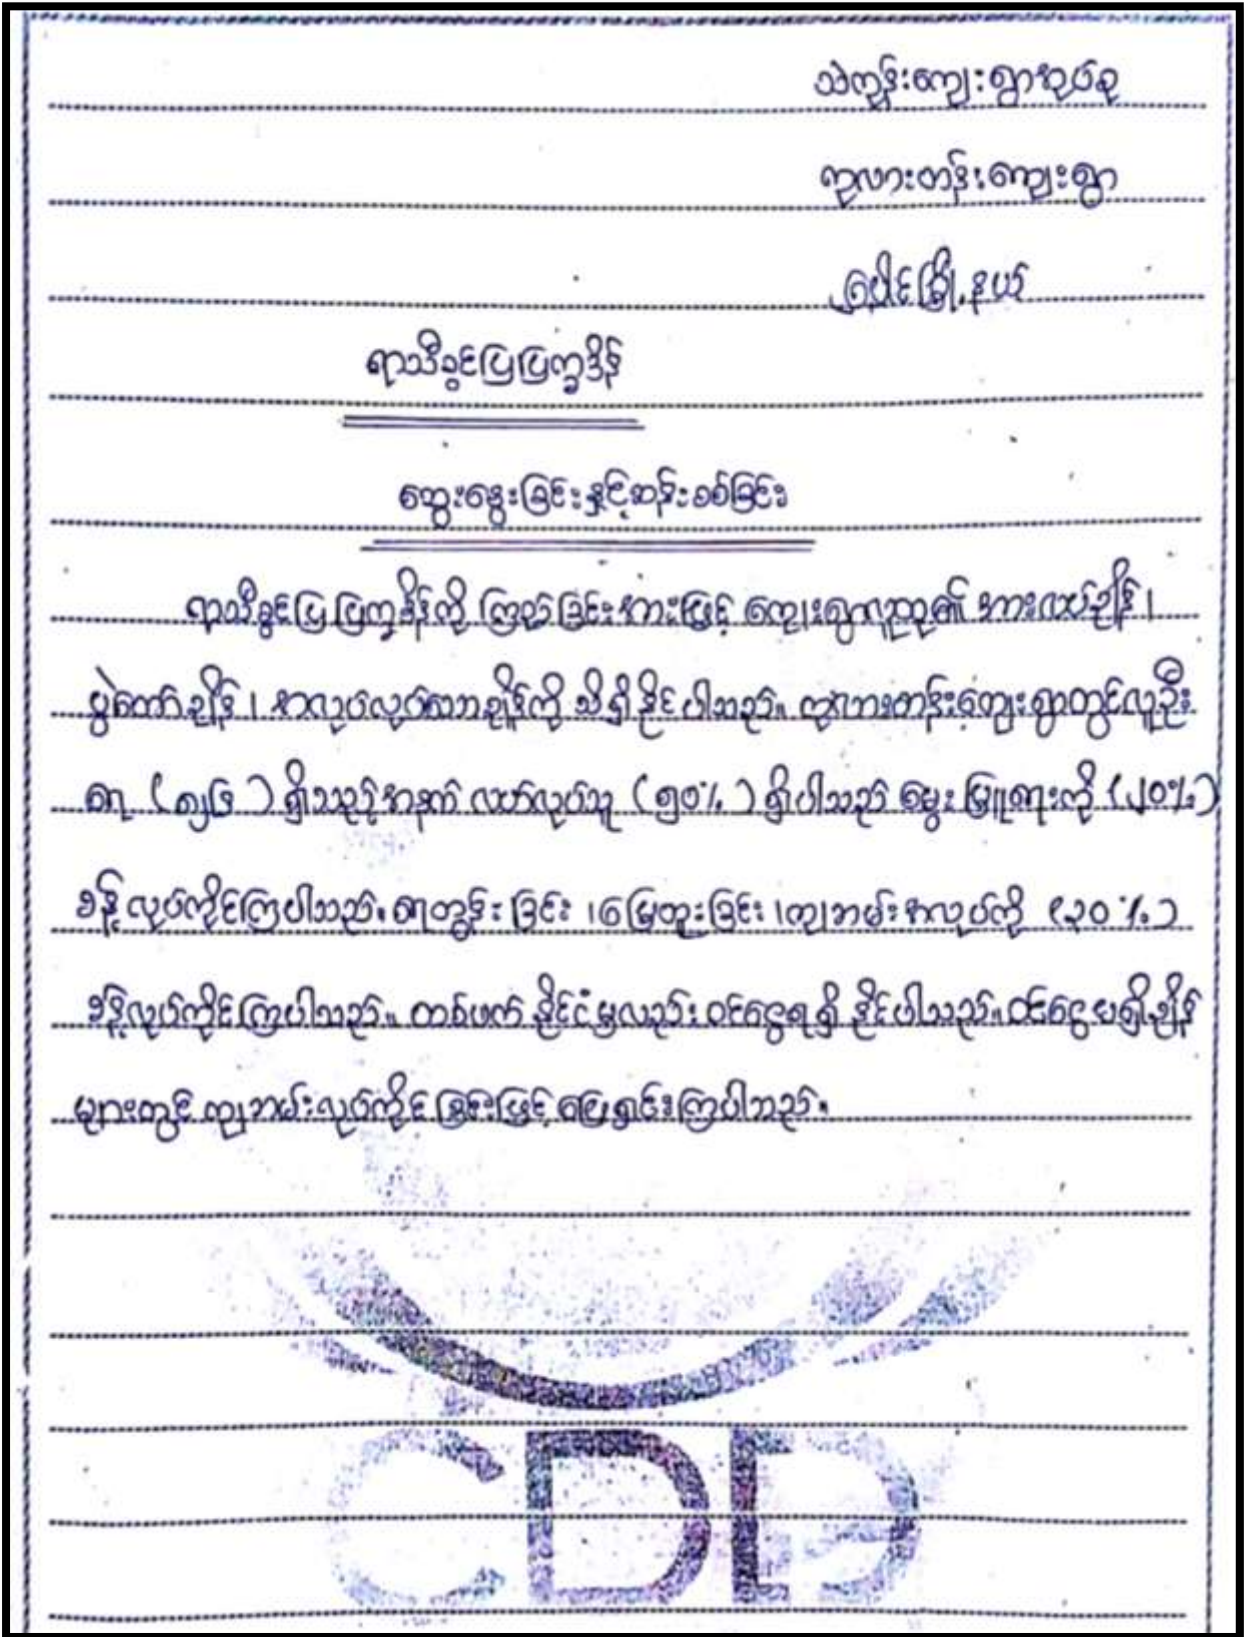 သဲကုန်းကျေးရွာအုပ်စု
ကုလားတန်းကျေးရွာ
ပေါင်မြို့နယ်
ရာသီခွင်ပြပြက္ခဒိန်
ဆွေးနွေးခြင်းနှင့်ဆန်းစစ်ခြင်း
ရာသီခွင်ပြပြက္ခဒိန်ကို ကြည့်ခြင်းအားဖြင့် ကျေးရွာလူထု၏ အားလပ်ချိန်၊
ပွဲတော်ချိန်၊ အလုပ်လုပ်သောချိန်ကို သိရှိနိုင်ပါသည်။ ကုလားတန်းကျေးရွာတွင်လူဦး
ရေ (၈၂၆) ရှိသည့်အနက် လယ်လုပ်သူ (၅၀%) ရှိပါသည် မွေးမြူရေးကို (၂၀%)
ခန့်လုပ်ကိုင်ကြပါသည်။ ရေတွန်းခြင်း၊ မြေတူးခြင်း၊ ကျဘမ်းအလုပ်ကို (၃၀%)
ခန့်လုပ်ကိုင်ကြပါသည်။ တစ်ဖက်နိုင်ငံမှလည်း ဝင်ငွေရရှိနိုင်ပါသည်။ ဝင်ငွေမရှိချိန်
များတွင် ကျဘမ်းလုပ်ကိုင်ခြင်းဖြင့် ဖြေရှင်းကြပါသည်။
CDD